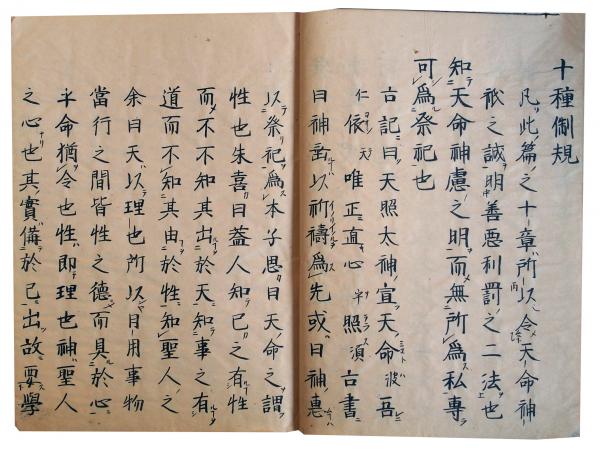 十種制規
凡此篇之十章所以令天命神
祇之誠明善悪利罰之二法也
知天命神慮之明而無所爲私專
可爲祭祀也
古記曰天照太神宣天命波吾
仁依唯正直心乎照須古書
曰神垂以祈禱爲先或曰神惠
以祭祀爲本子思曰天命之謂
性也朱喜曰蓋人知己之有性
而不不知其出於天知事之有
道而不知其由於性知聖人之
余曰天以理也所以日用事物
當行之間皆性之德而具於心
乎命猶令也性即理也神聖人
之心也其實備於己出故要學